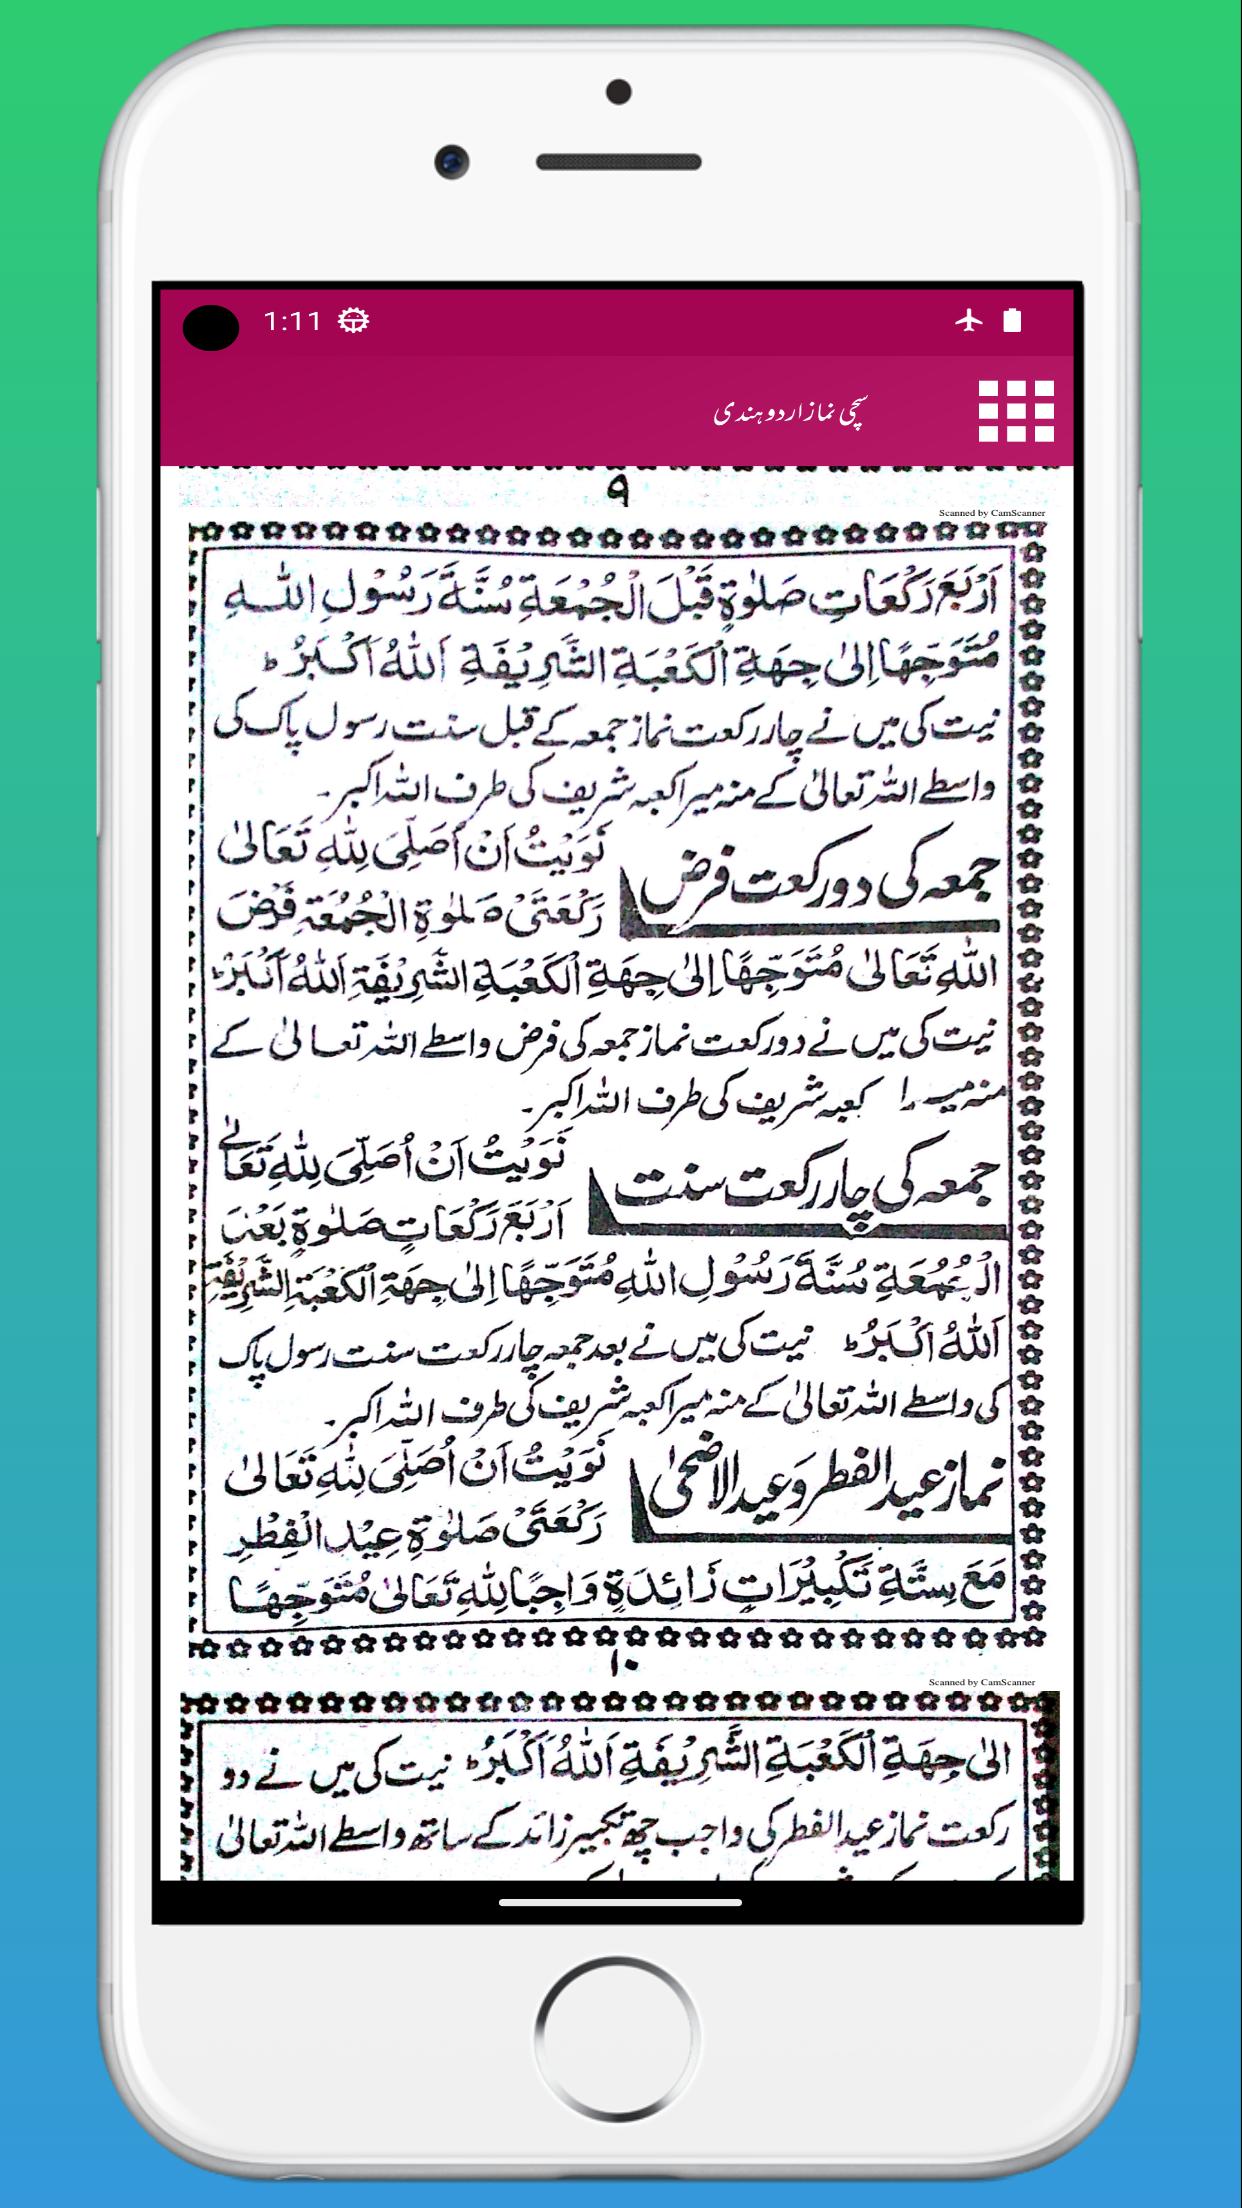 1:11
سچی نماز اردو ہندی
۹
Scanned by CamScanner
اَرْبَعَ رَكَعَاتِ صَلٰوةِ قَبْلَ الْجُمُعَةِ سُنَّةَ رَسُوْلِ اللّٰهِ
مُتَوَجِّهًا اِلٰى جِهَةِ الْكَعْبَةِ الشَّرِيْفَةِ اَللّٰهُ اَكْبَرُ ؕ
نیت کی میں نے چار رکعت نماز جمعہ کے قبل سنت رسول پاک کی
واسطے اللہ تعالیٰ کے منہ میرا کعبہ شریف کی طرف اللہ اکبر۔
جمعہ کی دو رکعت فرض
نَوَيْتُ اَنْ اُصَلِّىَ لِلّٰهِ تَعَالٰى
رَكْعَتَىْ صَلٰوةِ الْجُمُعَةِ فَرْضَ
اللّٰهِ تَعَالٰى مُتَوَجِّهًا اِلٰى جِهَةِ الْكَعْبَةِ الشَّرِيْفَةِ اَللّٰهُ اَكْبَرُ ؕ
نیت کی میں نے دو رکعت نماز جمعہ کی فرض واسطے اللہ تعالیٰ کے
منہ میرا کعبہ شریف کی طرف اللہ اکبر۔
جمعہ کی چار رکعت سنت
نَوَيْتُ اَنْ اُصَلِّىَ لِلّٰهِ تَعَالٰے
اَرْبَعَ رَكَعَاتِ صَلٰوةِ بَعْدَ
الْجُمُعَةِ سُنَّةَ رَسُوْلِ اللّٰهِ مُتَوَجِّهًا اِلٰى جِهَةِ الْكَعْبَةِ الشَّرِيْفَةِ
اَللّٰهُ اَكْبَرُ ؕ نیت کی میں نے بعد جمعہ چار رکعت سنت رسول پاک
کی واسطے اللہ تعالیٰ کے منہ میرا کعبہ شریف کی طرف اللہ اکبر۔
نماز عید الفطر و عید الاضحیٰ
نَوَيْتُ اَنْ اُصَلِّىَ لِلّٰهِ تَعَالٰى
رَكْعَتَىْ صَلٰوةِ عِيْدِ الْفِطْرِ
مَعَ سِتَّةِ تَكْبِيْرَاتٍ زَائِدَةٍ وَاجِبًا لِلّٰهِ تَعَالٰى مُتَوَجِّهًا
۱۰
Scanned by CamScanner
اِلٰى جِهَةِ الْكَعْبَةِ الشَّرِيْفَةِ اَللّٰهُ اَكْبَرُ ؕ نیت کی میں نے دو
رکعت نماز عید الفطر کی واجب چھ تکبیر زائد کے ساتھ واسطے اللہ تعالیٰ